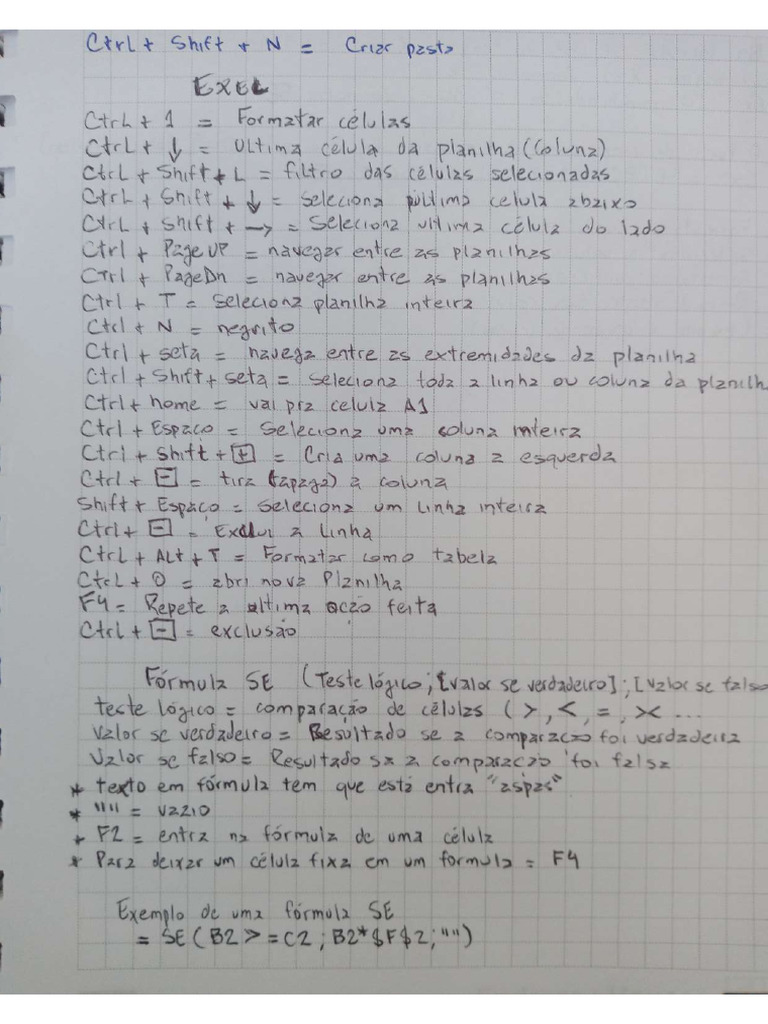 Ctrl + Shift + N = Criar pasta
EXEL
Ctrl + 1 = Formatar células
Ctrl + ↓ = Ultima célula da planilha (Coluna)
Ctrl + Shift + L = filtro das células selecionadas
Ctrl + Shift + ↓ = Seleciona última celula abaixo
Ctrl + Shift + → = Seleciona ultima célula do lado
Ctrl + PageUP = navegar entre as planilhas
Ctrl + PageDn = navegar entre as planilhas
Ctrl + T = Seleciona planilha inteira
Ctrl + N = negrito
Ctrl + seta = navega entre as extremidades da planilha
Ctrl + Shift + seta = seleciona toda a linha ou coluna da planilh
Ctrl + home = vai pra celula A1
Ctrl + Espaço = Seleciona uma coluna inteira
Ctrl + Shift + [+] = Cria uma coluna a esquerda
Ctrl + [-] = tira (apaga) a coluna
Shift + Espaço = Seleciona um linha inteira
Ctrl + [-] = Exclui a linha
Ctrl + ALt + T = Formatar como tabela
Ctrl + O = abri nova Planilha
F4 = Repete a ultima ação feita
Ctrl + [-] = exclusão
Fórmula SE (Teste lógico; [valor se verdadeiro]; [valor se falso
teste lógico = comparação de células (>, <, =, >< ...
Valor se verdadeiro = Resultado se a comparação foi verdadeira
Valor se falso = Resultado sa a comparação foi falsa
* texto em fórmula tem que está entra "aspas"
* "" = vazio
* F2 = entra na fórmula de uma célula
* Para deixar um célula fixa em um formula = F4
Exemplo de uma fórmula SE
= SE (B2 >= C2 ; B2*$F$2; "")